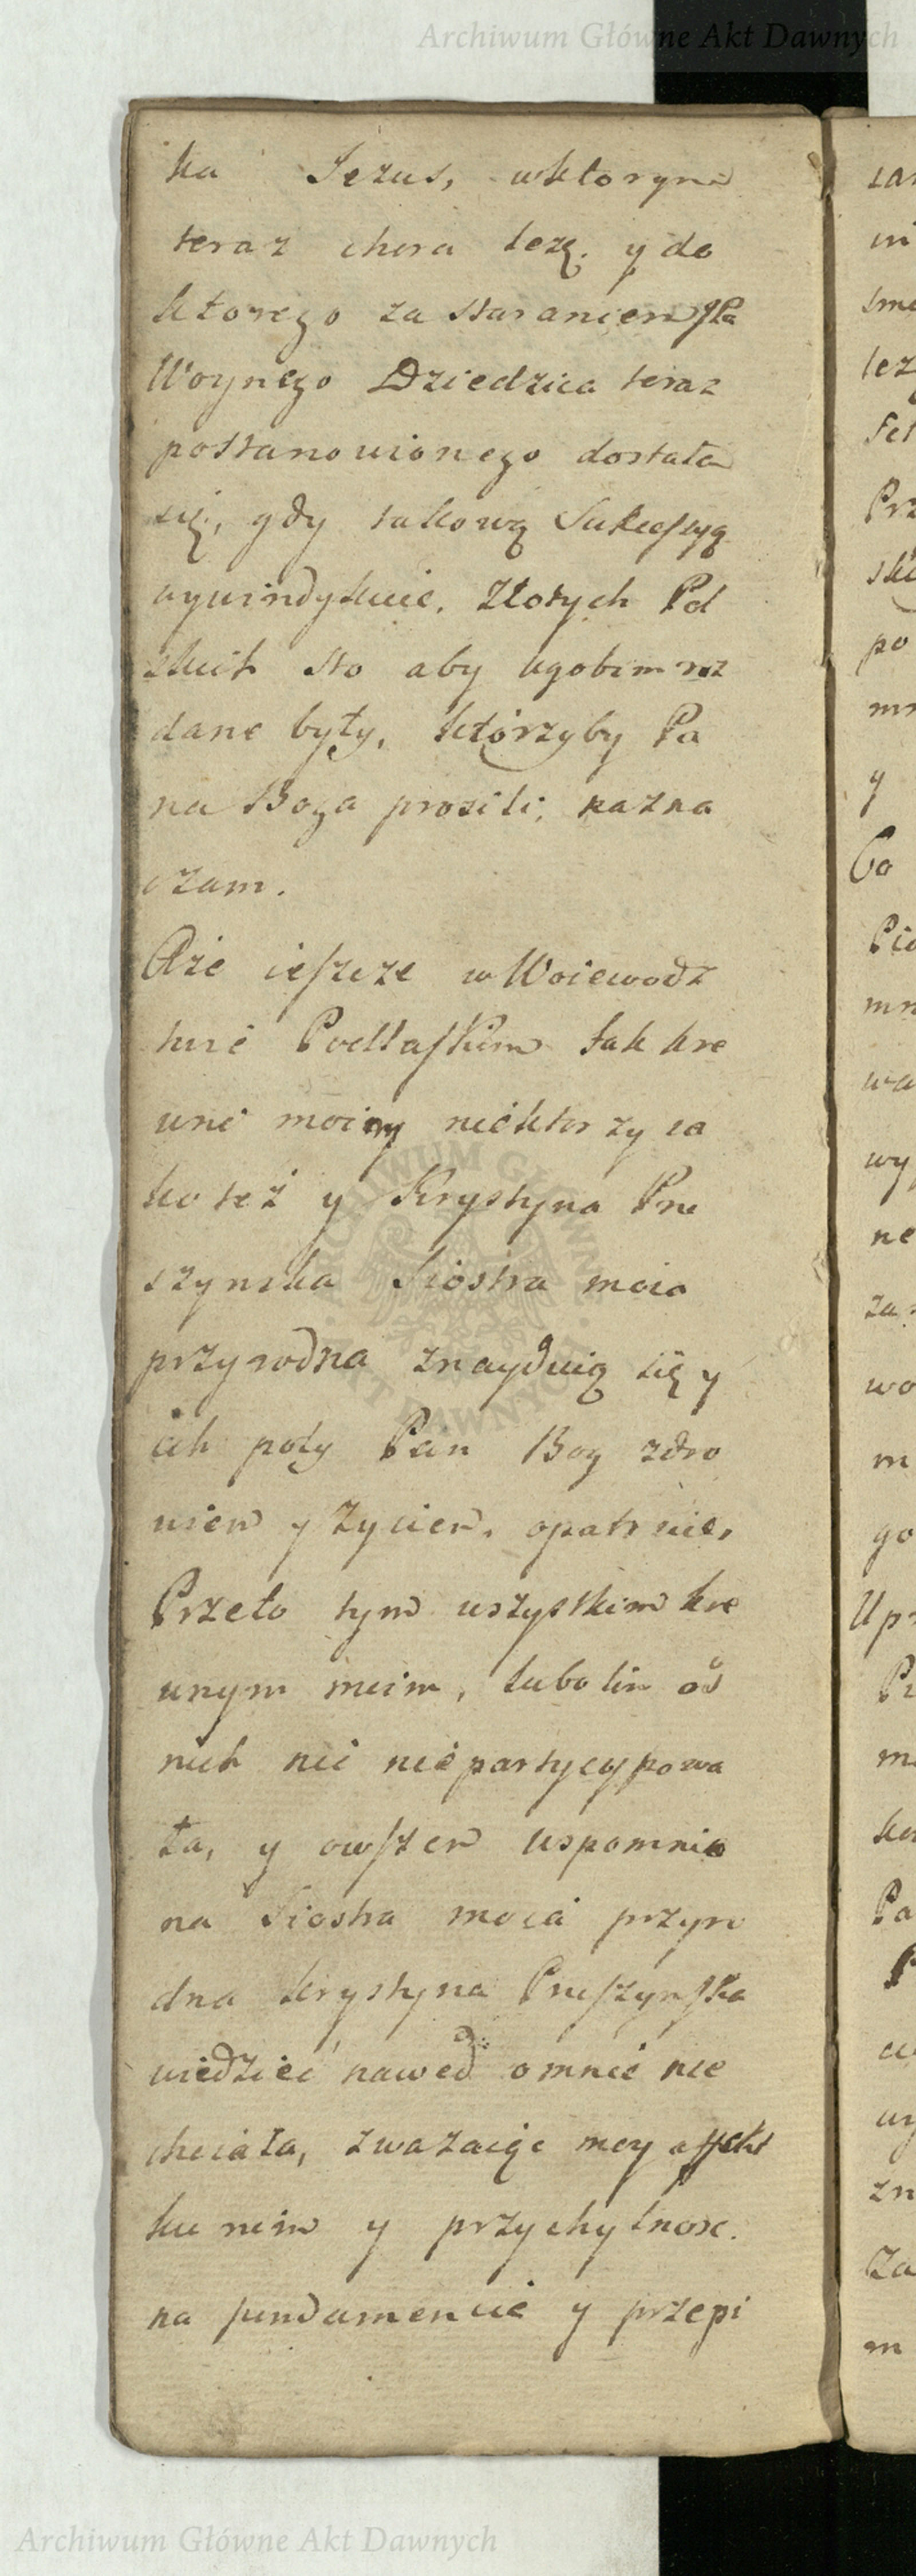 Archiwum Główne Akt Dawnych
ka Jezus, wktorym
teraz chora leżę. y do
ktorego za staraniem JPa
Woynego Dziedzica teraz
postanowionego dostała
się, gdy takową Sukcessyą
wywindykuie. Złotych Pol
skich sto aby ubogim roz
dane były, którzyby Pa
na Boga prosili; nazna
czam.
Aże ieszcze w Woiewodz
twie Podlaskim tak kre
wni moi niektorzy ia
ko też y Krystyna Pru
szynska Siostra moia
przyrodna znayduią się y
ich poty Pan Bog zdro
wiem y życiem. opatrzie,
Przeto tym wszystkim kre
wnym moim, lubolim od
nich nic niepartycypowa
ła, y owszem wspomnio
na Siostra moia przyro
dna Krystyna Pruszynska
wiedzieć nawed omnie nie
chciała, zwazaiąc mey affekt
ku nim y przychylnosc.
na fundamencie y przepi
Archiwum Główne Akt Dawnych